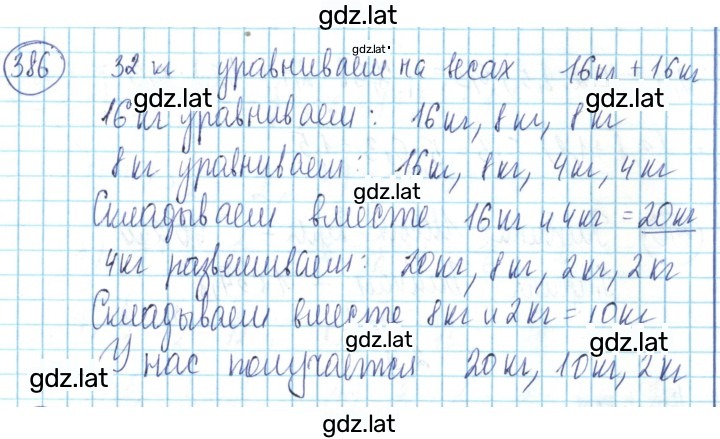 gdz.lat
gdz.lat
386 32 кг уравниваем на весах 16кг + 16кг
gdz.lat gdz.lat
16кг уравниваем: 16кг, 8кг, 8кг
8кг уравниваем: 16кг, 8кг, 4кг, 4кг
gdz.lat
Складываем вместе 16кг и 4кг = 20кг
4кг развешиваем: 20кг, 8кг, 2кг, 2кг
Складываем вместе 8кг и 2кг = 10кг
gdz.lat gdz.lat
У нас получается 20кг, 10кг, 2кг
gdz.lat
gdz.lat